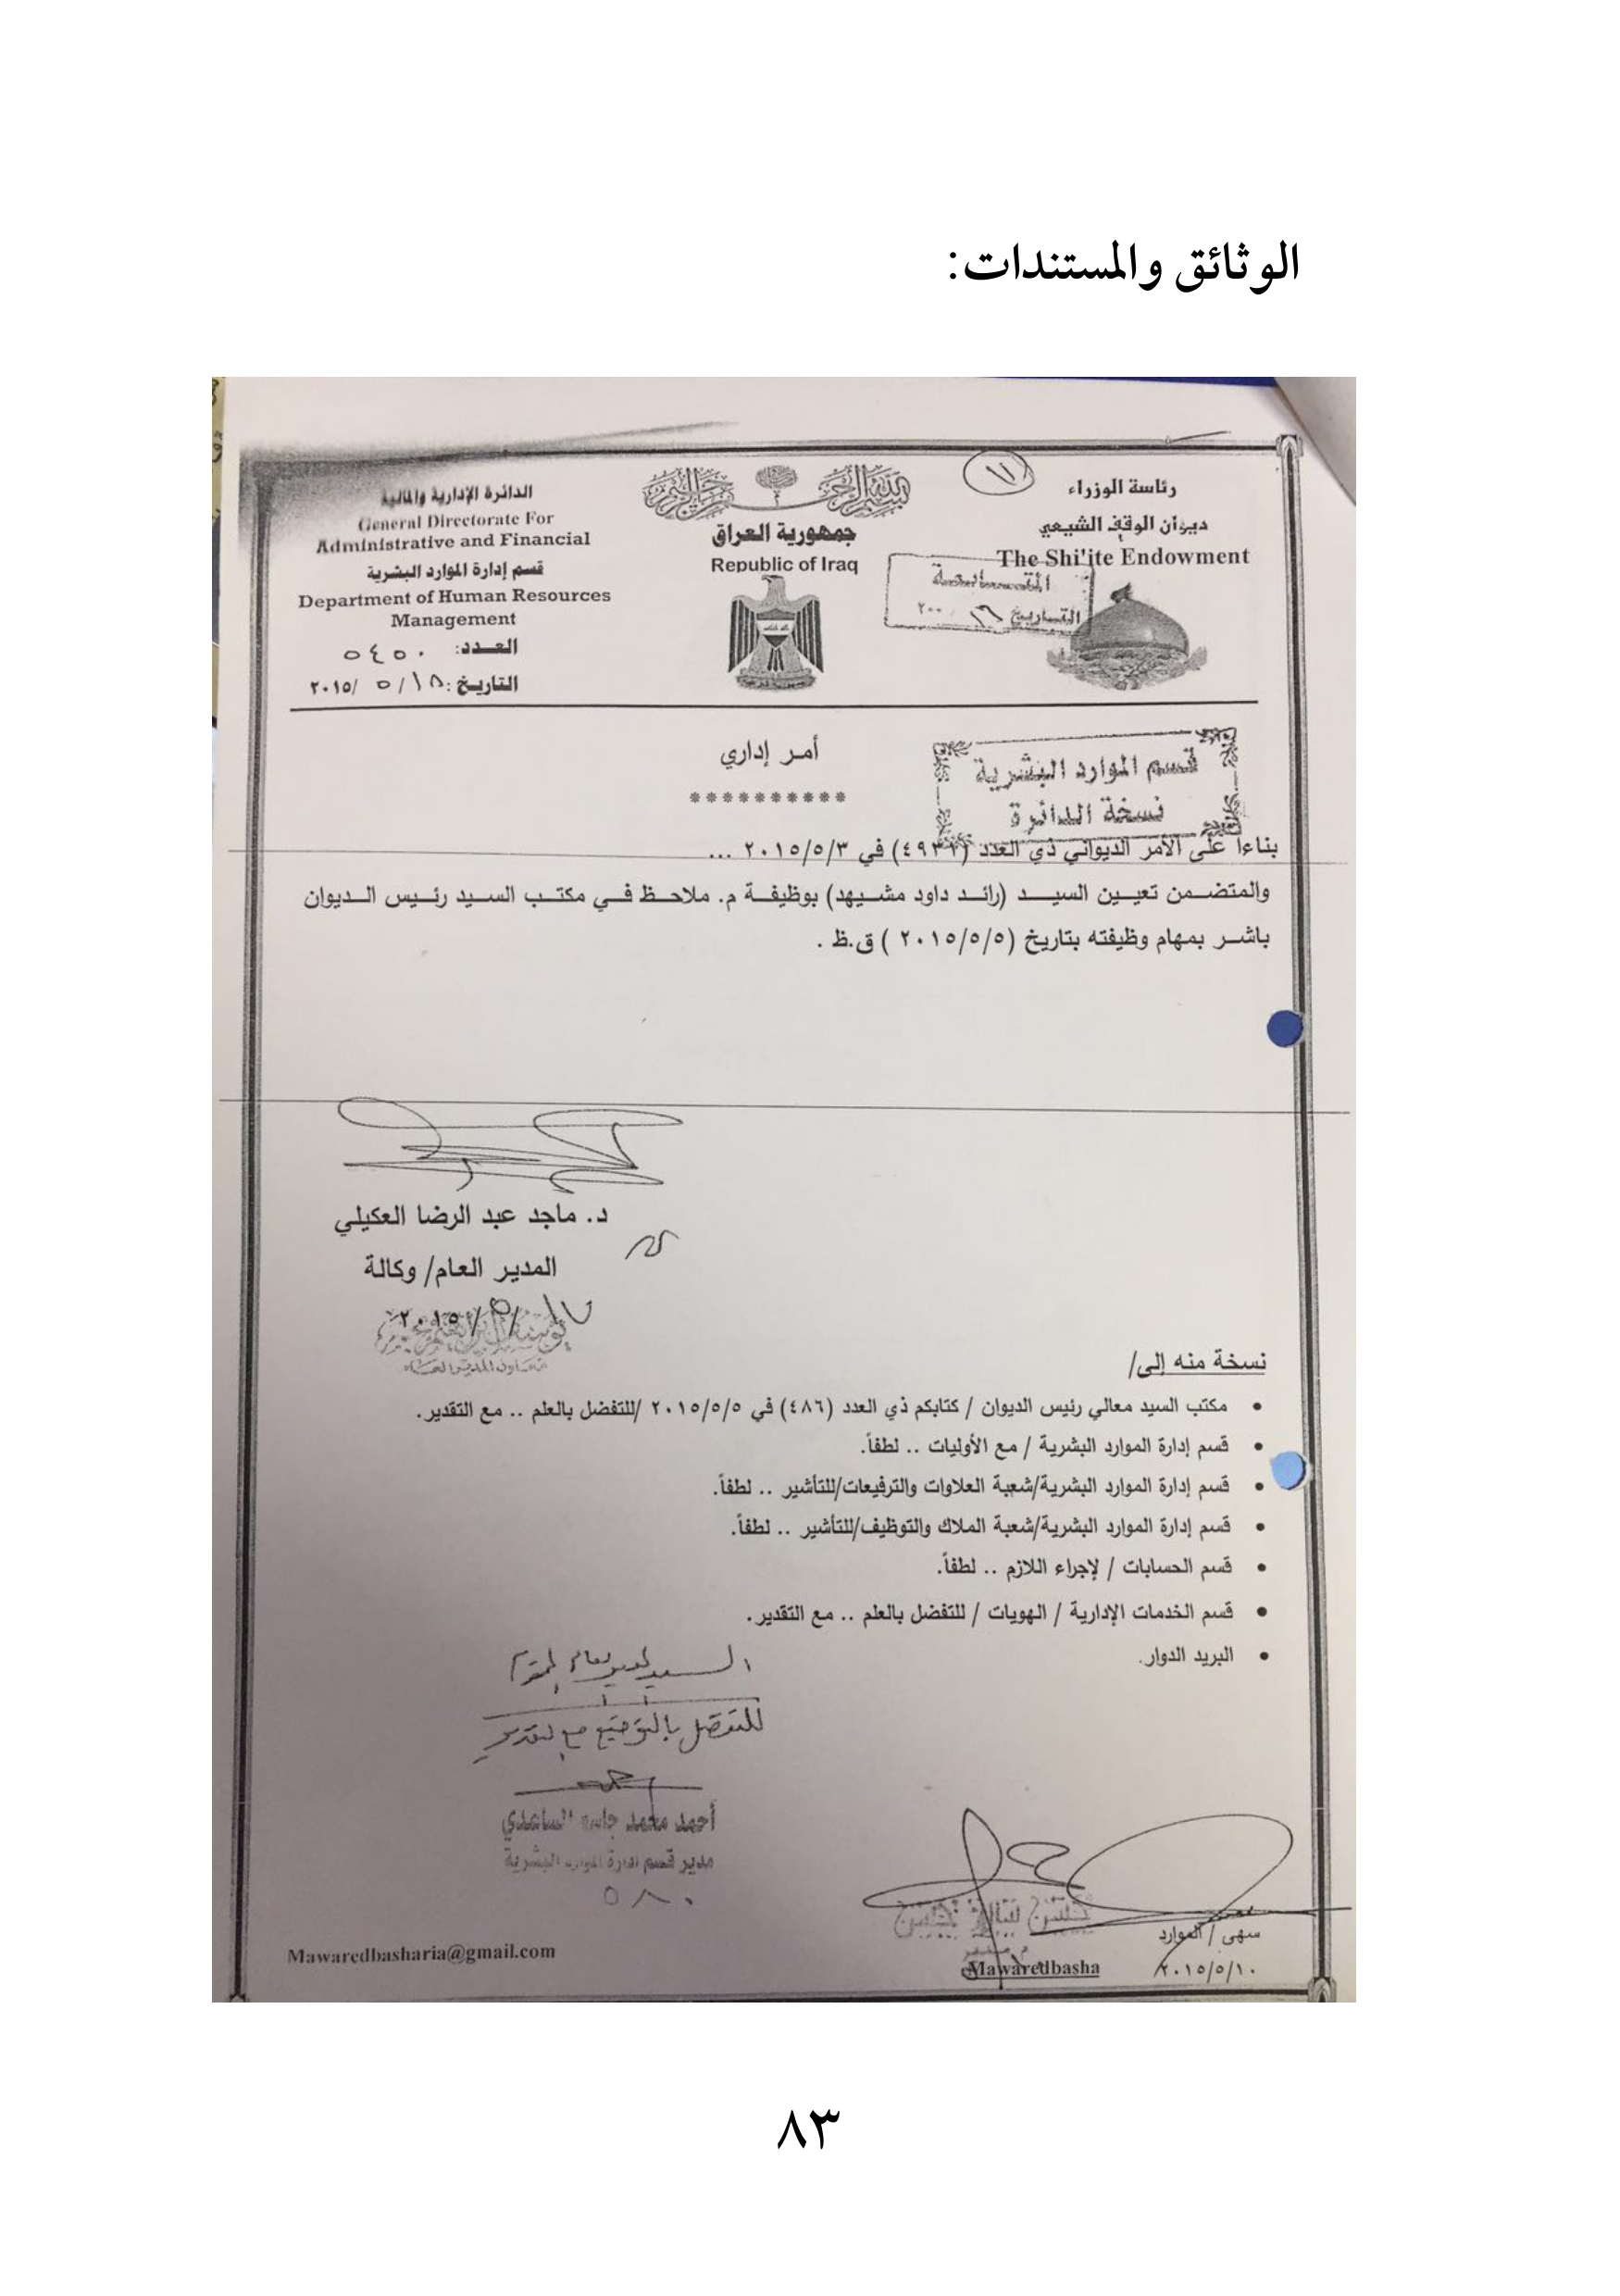 الوثائق والمستندات:
١١
رئاسة الوزراء
ديوان الوقف الشيعي
The Shi'ite Endowment
بسم الله الرحمن الرحيم
جمهورية العراق
Republic of Iraq
الدائرة الإدارية والمالية
General Directorate For
Administrative and Financial
قسم إدارة الموارد البشرية
Department of Human Resources
Management
العدد: ٥٤٥٠
التاريخ: ١٨/ ٥ /٢٠١٥
المتابعة
التاريخ ٢٠٠
أمر إداري
**********
قسم الموارد البشرية
نسخة الدائرة
بناءاً على الأمر الديواني ذي العدد في ٢٠١٥/٥/٣ ...
والمتضمن تعيين السيد (رائد داود مشيهد) بوظيفة م. ملاحظ في مكتب السيد رئيس الديوان
باشر بمهام وظيفته بتاريخ (٢٠١٥/٥/٥ ) ق.ظ .
د. ماجد عبد الرضا العكيلي
المدير العام/ وكالة
٢٠١٥/٥/
معاون المدير العام
نسخة منه إلى/
• مكتب السيد معالي رئيس الديوان / كتابكم ذي العدد (٤٨٦) في ٢٠١٥/٥/٥ /للتفضل بالعلم .. مع التقدير.
• قسم إدارة الموارد البشرية / مع الأوليات .. لطفاً.
• قسم إدارة الموارد البشرية/شعبة العلاوات والترفيعات/للتأشير .. لطفاً.
• قسم إدارة الموارد البشرية/شعبة الملاك والتوظيف/للتأشير .. لطفاً.
• قسم الحسابات / لإجراء اللازم .. لطفاً.
• قسم الخدمات الإدارية / الهويات / للتفضل بالعلم .. مع التقدير.
• البريد الدوار.
السيد المدير العام المحترم
للتفضل بالتوقيع مع التقدير
أحمد محمد جاسم الساعدي
مدير قسم ادارة الموارد البشرية
٥٨٠
سهى / الموارد
٢٠١٥/٥/١٠
Mawaredbasha
Mawaredbasharia@gmail.com
٨٣